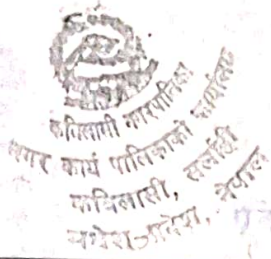 कविलासी नगरपालिका
नगर कार्य पालिकाको कार्यालय
कविलासी, सर्लाही
मधेश प्रदेश, नेपाल